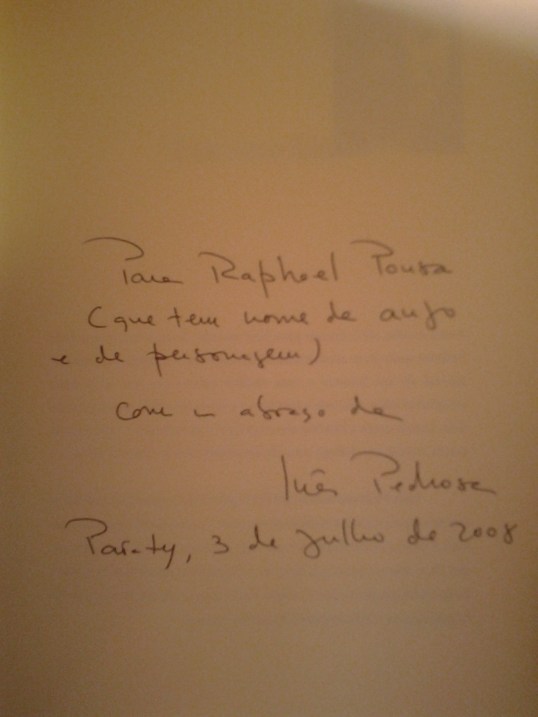 Para Raphael Pousa
(que tem nome de anjo
e de personagem)
com um abraço de
Inês Pedrosa
Paraty, 3 de julho de 2008